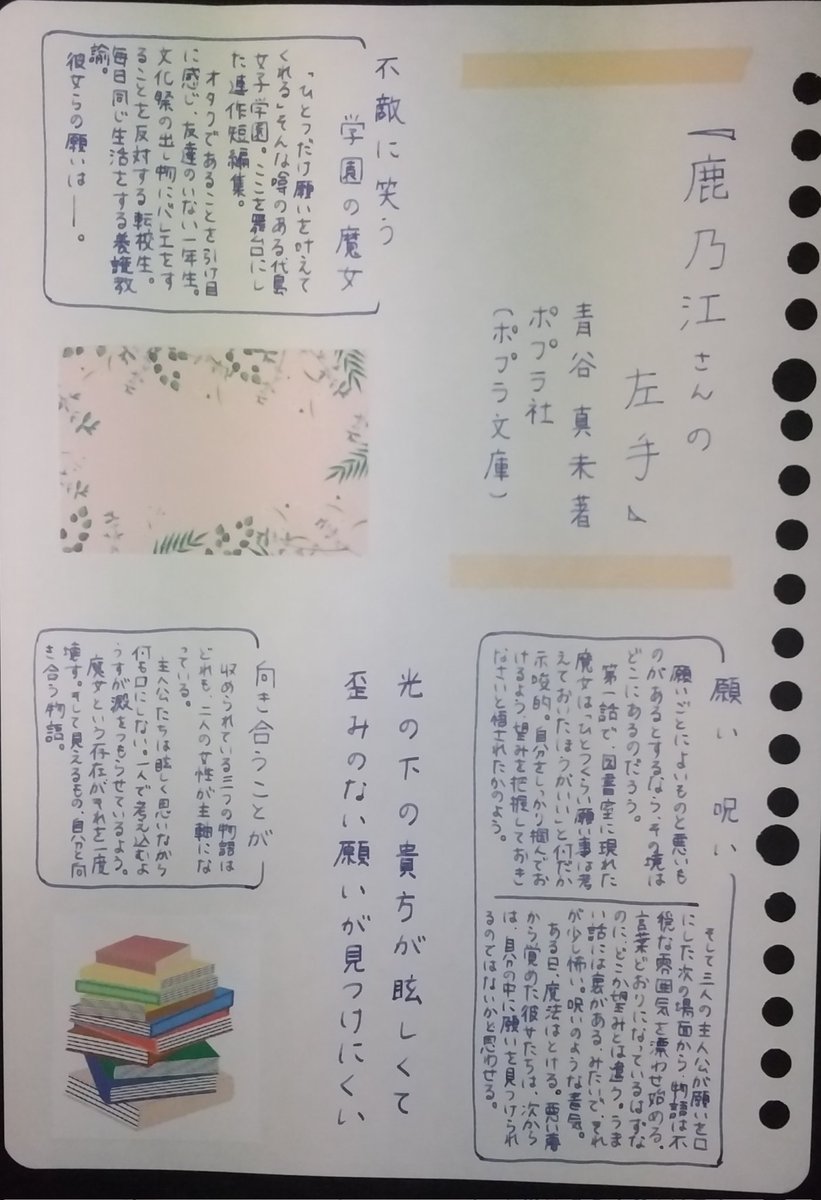 『鹿乃江さんの
左手』
青谷真未著
ポプラ社
(ポプラ文庫)
不敵に笑う
学園の魔女
「ひとつだけ願いを叶えて
くれる」そんな噂のある代島
女子学園。ここを舞台にし
た連作短編集。
オタクであることを引け目
に感じ、友達のいない一年生。
文化祭の出し物にバレエをす
ることを反対する転校生。
毎日同じ生活をする養護教
諭。
彼女らの願いは――。
願い 呪い
願いごとによいものと悪いも
のがあるとするなら、その境は
どこにあるのだろう。
第一話で、図書室に現れた
魔女は「ひとつくらい願い事は考
えておいたほうがいい」と何だか
示唆的。自分をしっかり掴んでお
けるよう、望みを把握しておき
なさいと悟されたかのよう。
そして三人の主人公が願いを口
にした次の場面から、物語は不
穏な雰囲気を漂わせ始める。
言葉どおりになっているはずな
のに、どこか望みとは違う。うま
い話には裏がある、みたいで、それ
が少し怖い。呪いのような毒気。
ある日、魔法はとける。悪い夢
から覚めた彼女たちは、次から
は、自分の中に願いを見つけられ
るのではないかと思わせる。
光の下の貴方が眩しくて
歪みのない願いが見つけにくい
向き合うことが
収められている三つの物語は
どれも、二人の女性が主軸にな
っている。
主人公たちは眩しく思いながら
何も口にしない。一人で考え込むよ
うすが澱をつもらせているよう。
魔女という存在がそれを一度
壊す。そして見えるもの、自分と向
き合う物語。